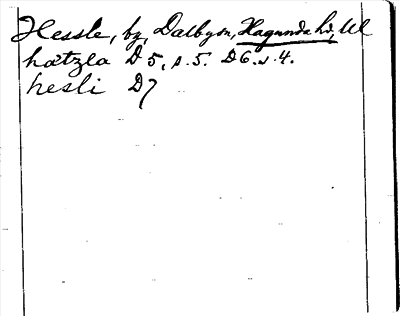 Hessle, by, Dalby sn, Hagunda hd, Ul
hatzla D 5, s. 5. D 6. s. 4.
hesli D7